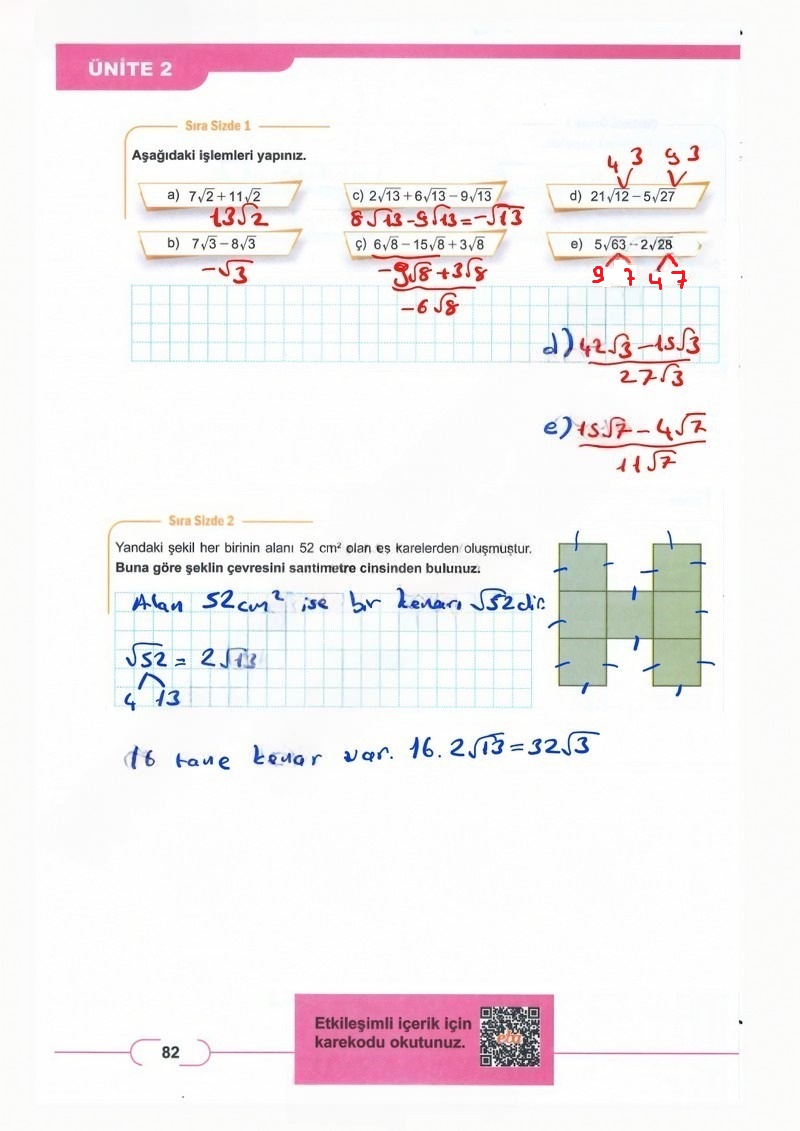 ÜNİTE 2
Sıra Sizde 1
Aşağıdaki işlemleri yapınız.
4 3 9 3
a) 7√2 + 11√2 c) 2√13 + 6√13 − 9√13 d) 21√12 − 5√27
13√2 8√13 - 9√13 = -√13
b) 7√3 − 8√3 ç) 6√8 − 15√8 + 3√8 e) 5√63 - 2√28
-√3 -9√8 + 3√8 9 7 4 7
-6√8
d) 42√3 - 15√3
27√3
e) 15√7 - 4√7
11√7
Sıra Sizde 2
Yandaki şekil her birinin alanı 52 cm² olan eş karelerden oluşmuştur.
Buna göre şeklin çevresini santimetre cinsinden bulunuz.
Alan 52 cm² ise bir kenarı √52 dir.
√52 = 2√13
4 13
16 tane kenar var. 16. 2√13 = 32√3
Etkileşimli içerik için
karekodu okutunuz.
eba
82